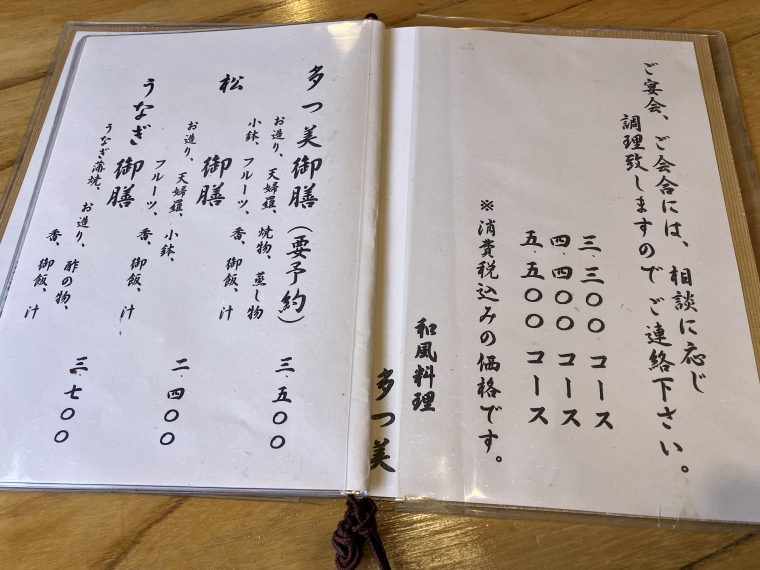 ご宴会、ご会合には、相談に応じ
調理致しますのでご連絡下さい。
三.三〇〇コース
四.四〇〇コース
五.五〇〇コース
※消費税込みの価格です。
和風料理
多つ美
多つ美御膳(要予約)
お造り、天婦羅、焼物、蒸し物
小鉢、フルーツ、香、御飯、汁
三.五〇〇
松 御膳
お造り、天婦羅、小鉢、
フルーツ、香、御飯、汁
二.四〇〇
うなぎ御膳
うなぎ蒲焼、お造り、酢の物、
香、御飯、汁
三.七〇〇